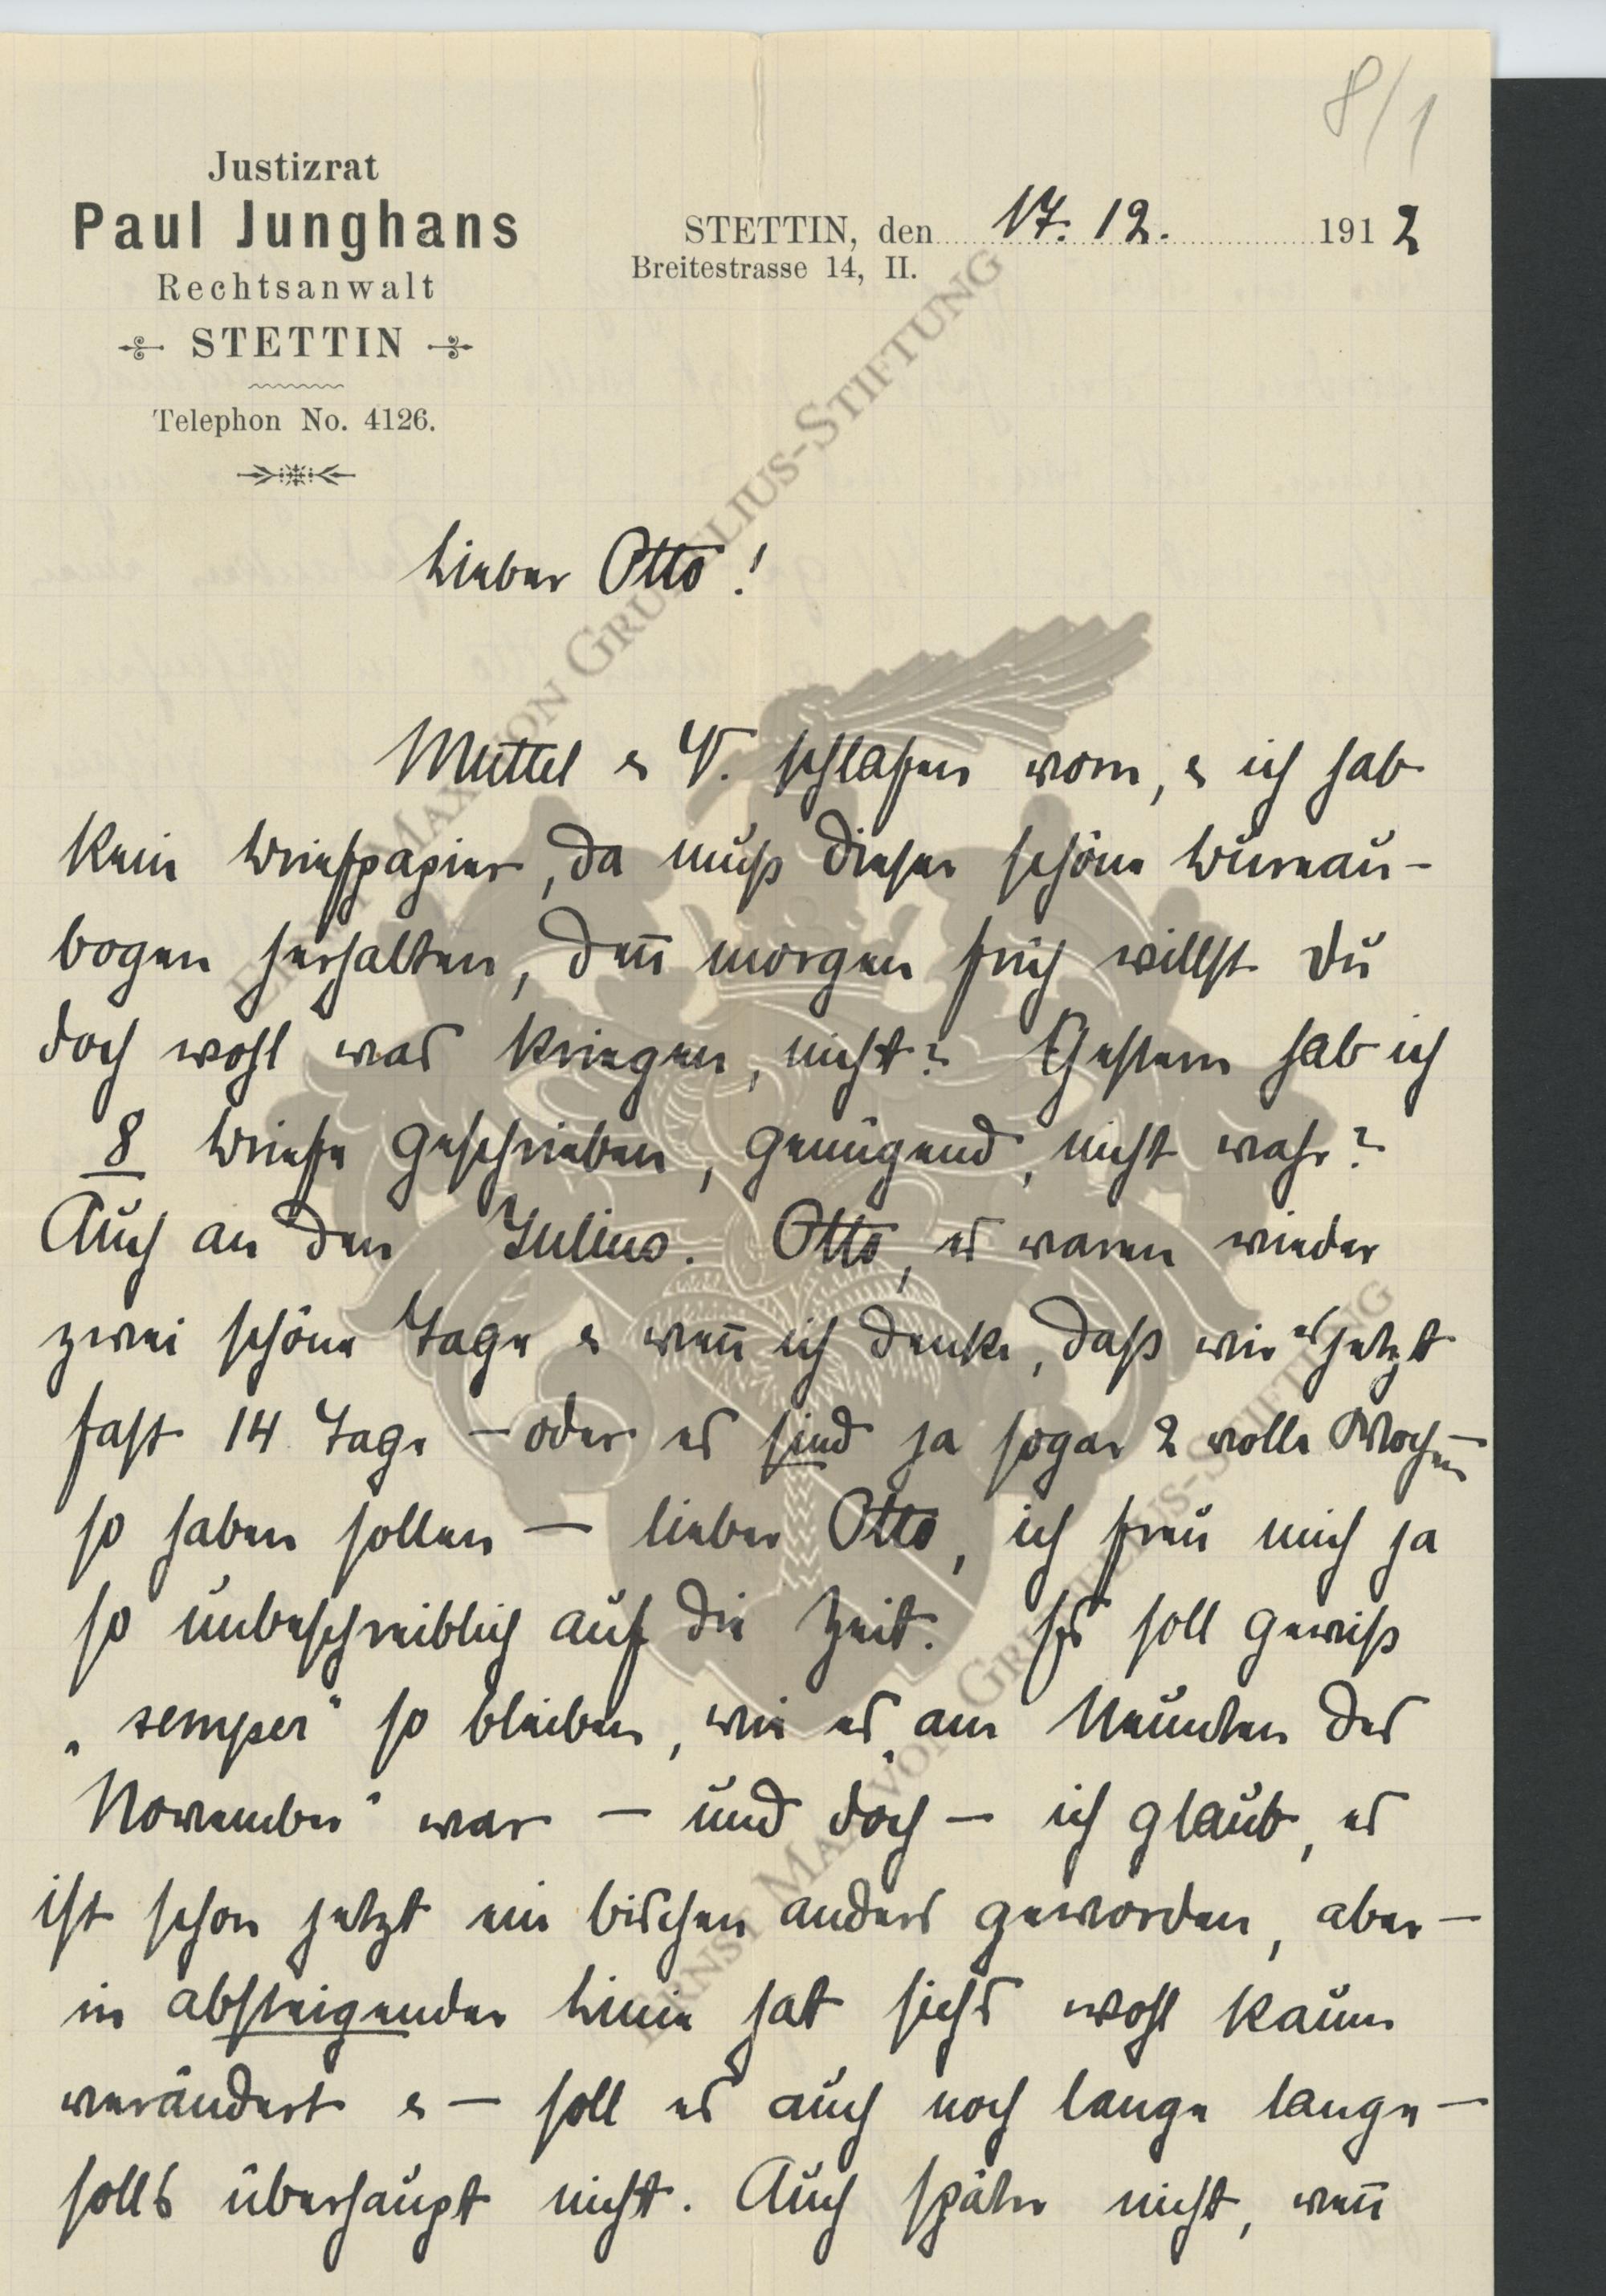 8/1
Justizrat
Paul Junghans
Rechtsanwalt
STETTIN
Telephon No. 4126.
STETTIN, den 17. 12. 1912
Breitestrasse 14, II.
Lieber Otto!
Muttel & V. schlafen vorn, & ich hab
kein Briefpapier, da muß dieser schöne Bureau-
bogen herhalten, den̄ morgen früh willst Du
doch wohl was kriegen, nicht? Gestern hab ich
8 Briefe geschrieben, genügend, nicht wahr?
Auch an den Julius. Otto, es waren wieder
zwei schöne Tage & wen̄ ich denke, daß wir es jetzt
fast 14 Tage – oder es sind ja sogar 2 volle Wochen –
so haben sollen – lieber Otto, ich freu mich ja
so unbeschreiblich auf die Zeit. Es soll gewiß
„semper" so bleiben, wie es „am Neunten des
November" war – und doch – ich glaub, es
ist schon jetzt ein bischen anders geworden, aber –
in absteigender Linie hat sichs wohl kaum
verändert & – soll es auch noch lange lange –
solls überhaupt nicht. Auch später nicht, wen̄
ERNST MAX VON GRUNELIUS-STIFTUNG
ERNST MAX VON GRUNELIUS-STIFTUNG